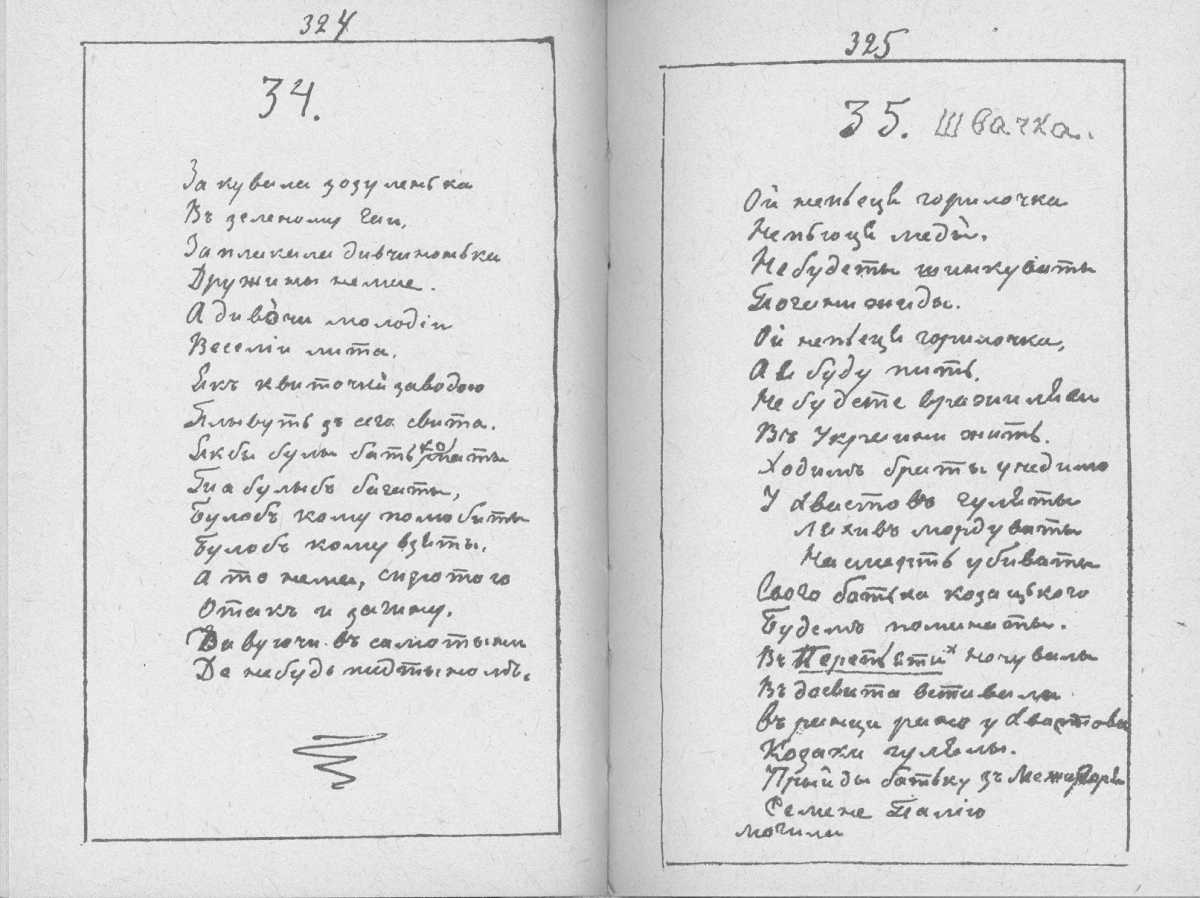 324
34.
Закувала зозуленька
Въ зеленому гаи,
Заплакала дивчинонька
Дружины немае.
А дивочи молодіи
Веселіи лита,
Якъ квиточкы заводою
Плывуть зъ сего свита.
Якбы булы батько маты
Та булыбъ багаты,
Булобъ кому полюбыты
Булобъ кому взяты.
А то нема, сиротою
Отакъ и загину,
Дивуючи въ самотыни
Де небудь пидтыномъ.
325
35. Швачка.
Ой непьеця горилочка
Непьюця меды.
Небудеты шинкувати
Погани жиды.
Ой непьеця горилочка,
А я буду пить,
Не будете вражи ляхи
Въ Украини жить.
Ходимъ браты
У Хвастовъ гуляты
Ляхивъ мордуваты
На смерть убиваты
Свого батька козацького
Будемъ поминаты.
Въ Перепяти х ночувалы
Въ досвита вставалы
въ ранци рано у Хвастовы
Козаки гулялы.
Прыйды батьку зъ Межигоря
Семене Палію
могили